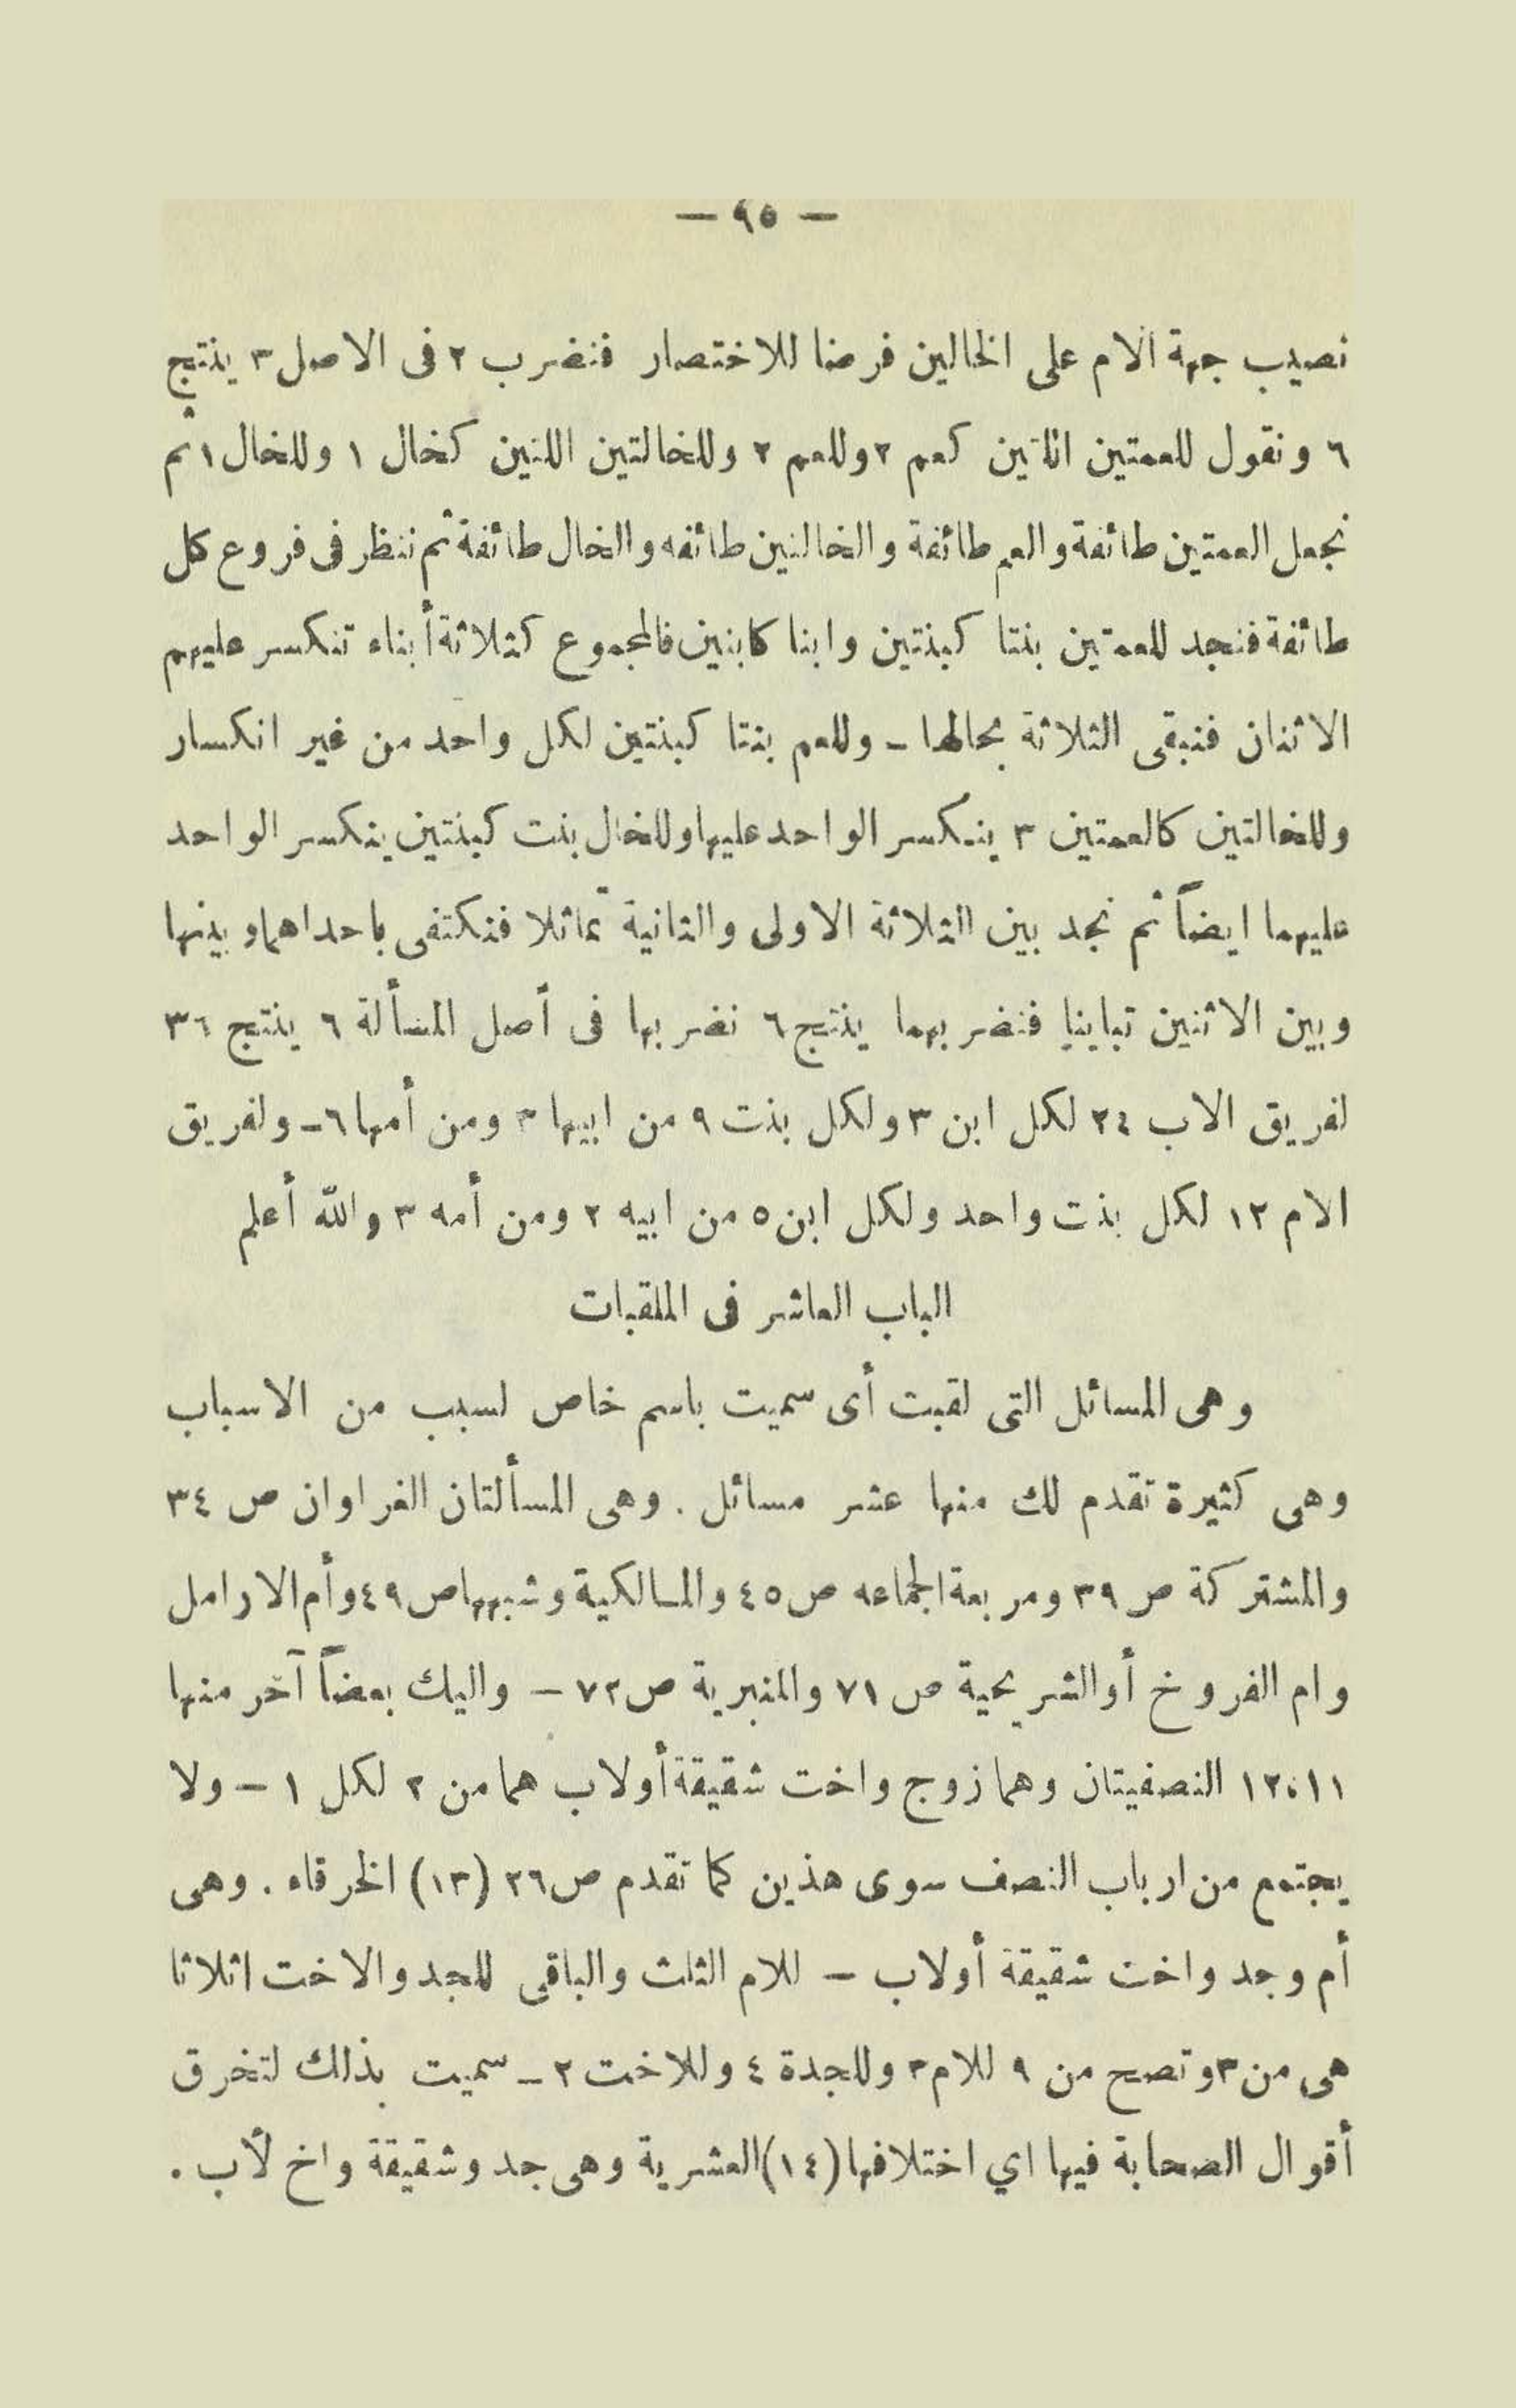 — ٩٥ —
نصيب جهة الام على الخالين فرضا للاختصار فنضرب ٢ فى الاصل ٣ ينتج
٦ ونقول للعمتين اللتين كعم ٢ وللعم ٢ وللخالتين اللتين كخال ١ وللخال ١ ثم
نجعل العمتين طائفة والعم طائفة والخالتين طائفه والخال طائفة ثم ننظر فى فروع كل
طائفة فنجد للعمتين بنتا كبنتين وابنا كابنين فالمجموع كثلاثة أبناء تنكسر عليهم
الاثنان فنبقى الثلاثة بحالها – وللعم بنتا كبنتين لكل واحد من غير انكسار
وللخالتين كالعمتين ٣ ينكسر الواحد عليها وللخال بنت كبنتين ينكسر الواحد
عليهما ايضاً ثم نجد بين الثلاثة الاولى والثانية تماثلا فنكتفى باحداهما وبينها
وبين الاثنين تباينا فنضربهما ينتج ٦ نضربها فى أصل المسألة ٦ ينتج ٣٦
لفريق الاب ٢٤ لكل ابن ٣ ولكل بنت ٩ من ابيها ٣ ومن أمها ٦ – ولفريق
الام ١٢ لكل بنت واحد ولكل ابن ٥ من ابيه ٢ ومن أمه ٣ والله أعلم
الباب العاشر فى الملقبات
وهى المسائل التى لقبت أى سميت باسم خاص لسبب من الاسباب
وهى كثيرة تقدم لك منها عشر مسائل . وهى المسألتان الغراوان ص ٣٤
والمشتركة ص ٣٩ ومربعة الجماعه ص ٤٥ والمالكية وشبهها ص ٤٩ وأم الارامل
وام الفروخ أو الشريحية ص ٧١ والمنبرية ص ٧٢ – واليك بعضاً آخر منها
١٢،١١ النصفيتان وهما زوج واخت شقيقة أو لاب هما من ٢ لكل ١ – ولا
يجتمع من ارباب النصف سوى هذين كما تقدم ص ٢٦ (١٣) الخرقاء . وهى
أم وجد واخت شقيقة أو لاب – للام الثلث والباقى للجد والاخت اثلاثا
هى من ٣ وتصح من ٩ للام ٣ وللجدة ٤ وللاخت ٢ – سميت بذلك لتخرق
أقوال الصحابة فيها اي اختلافها (١٤) العشرية وهى جد وشقيقة واخ لأب .